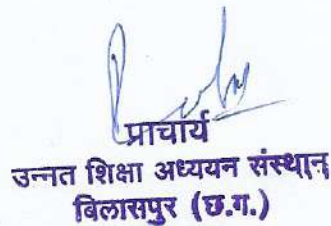 प्राचार्य
उन्नत शिक्षा अध्ययन संस्थान
बिलासपुर (छ.ग.)